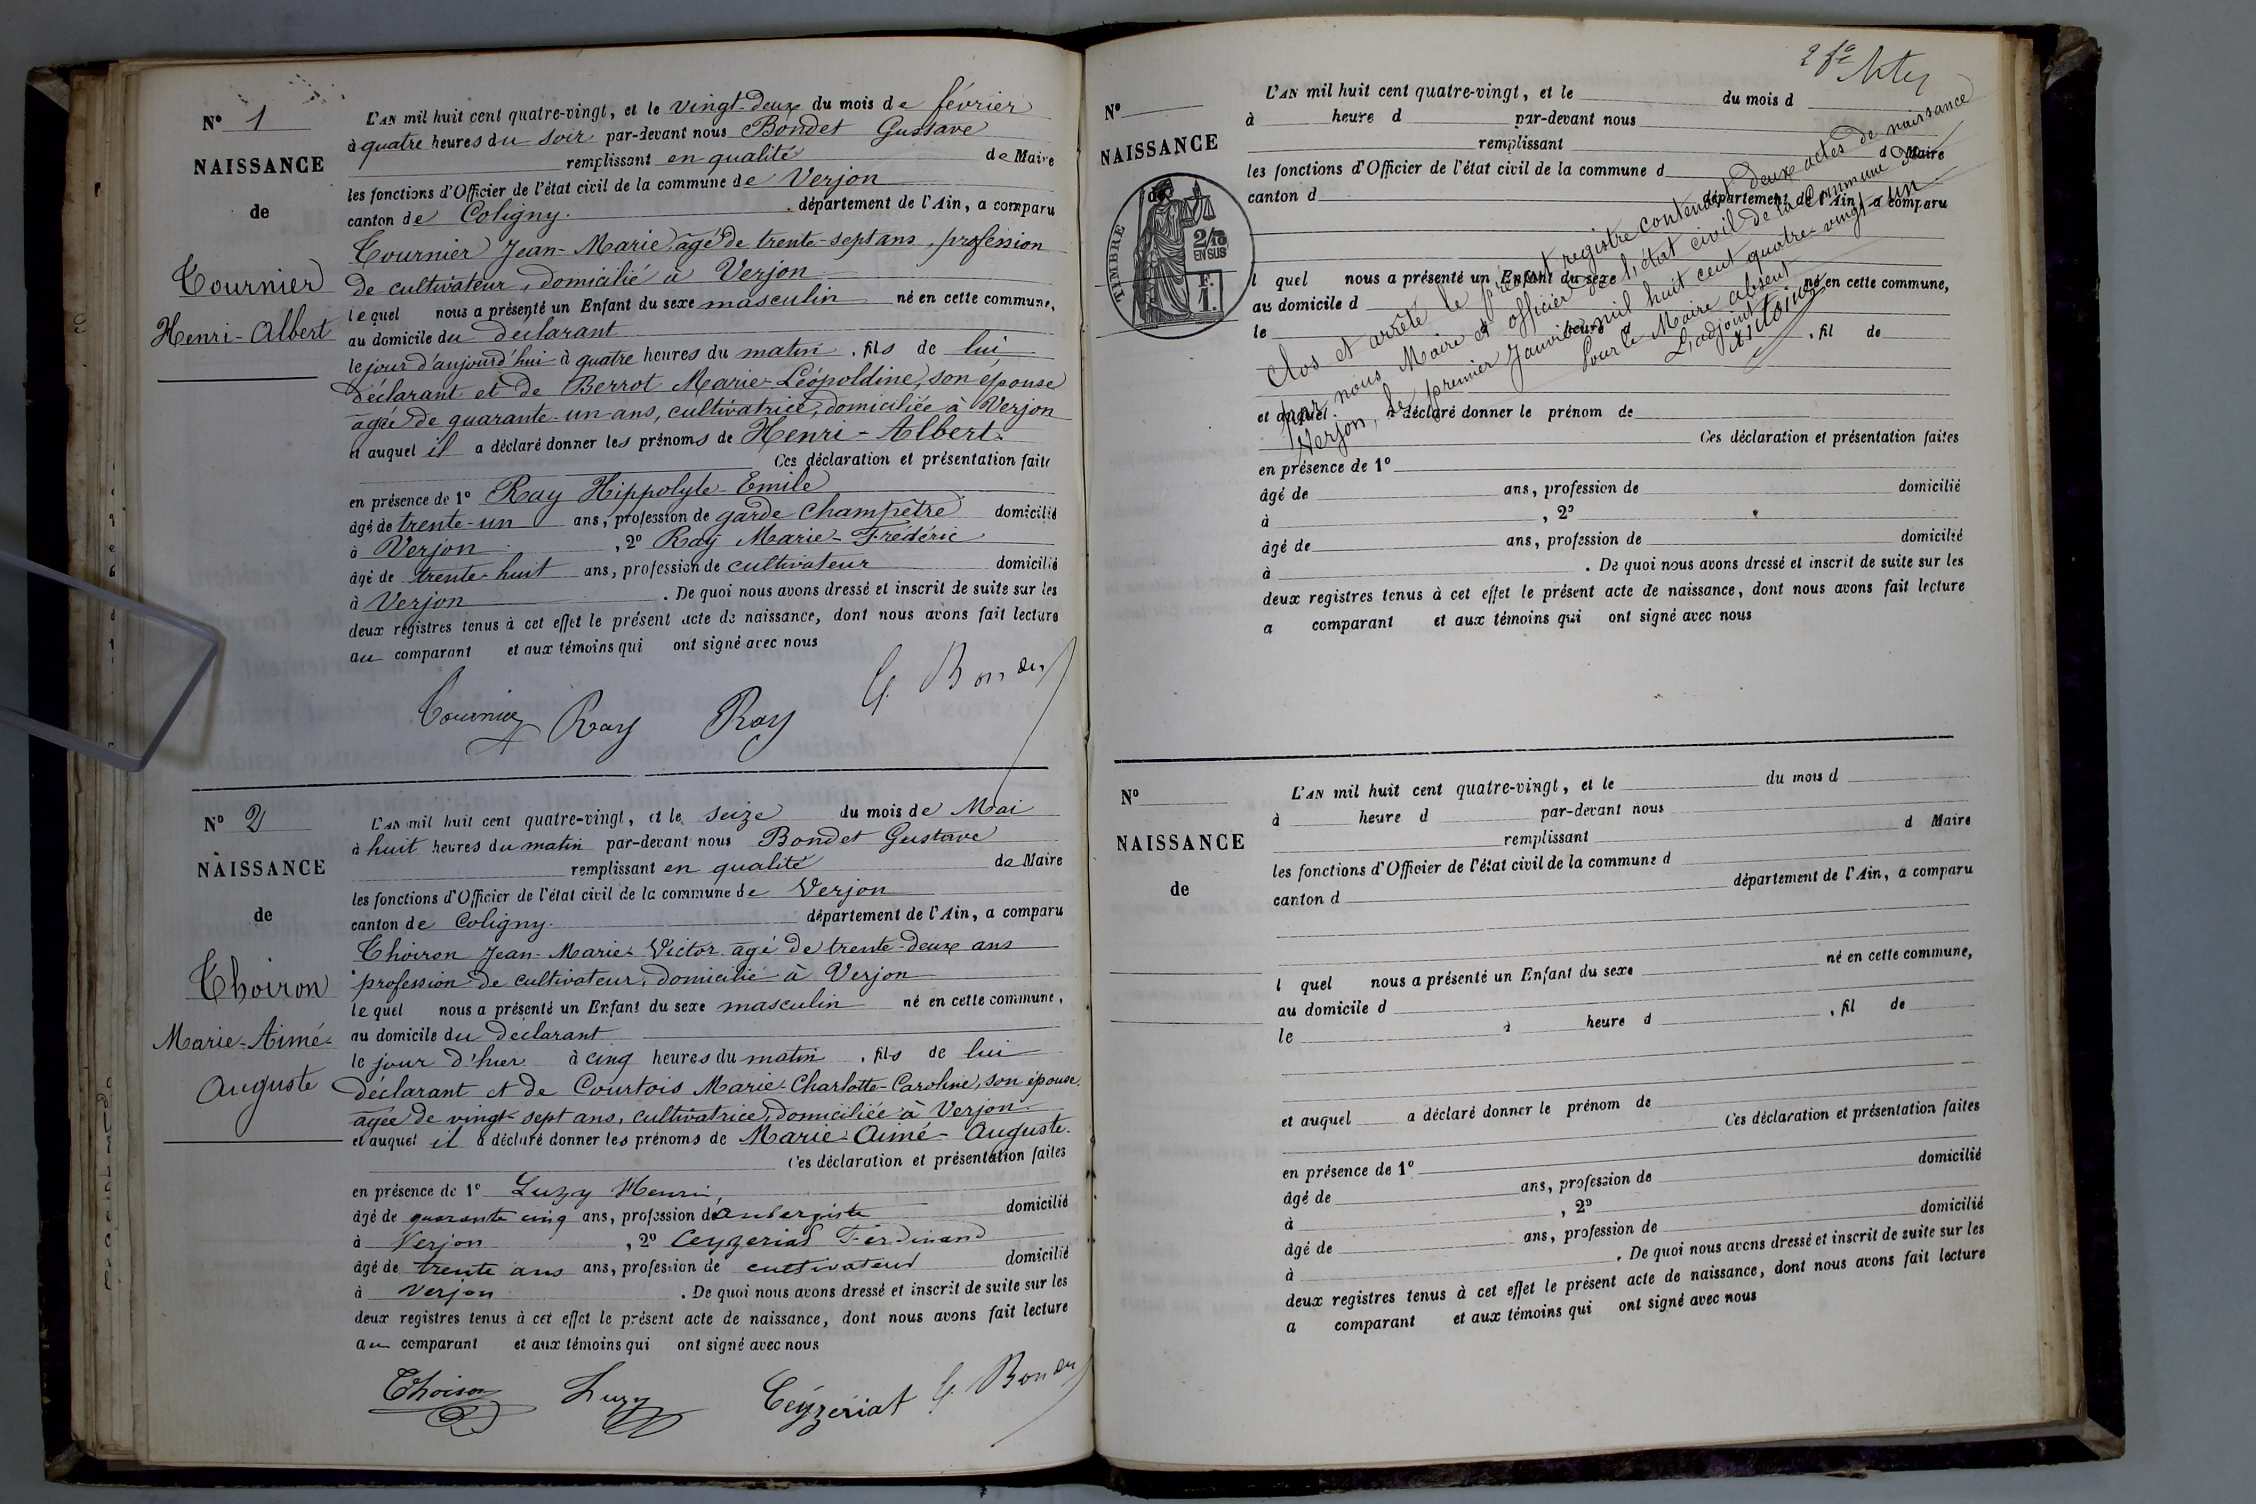 N° 1
NAISSANCE
de
Tournier
Henri-Albert
L'AN mil huit cent quatre-vingt, et le vingt-deux du mois de février
à quatre heures du soir par-devant nous Bondet Gustave
remplissant en qualité de Maire
les fonctions d'Officier de l'état civil de la commune de Verjon
canton de Coligny. département de l'Ain, a comparu
Tournier Jean-Marie âgé de trente-sept ans, profession
de cultivateur, domicilié à Verjon
lequel nous a présenté un Enfant du sexe masculin né en cette commune,
au domicile du déclarant
le jour d'aujourd'hui à quatre heures du matin, fils de lui
déclarant et de Berrot Marie-Léopoldine, son épouse
âgée de quarante-un ans, cultivatrice, domiciliée à Verjon
et auquel il a déclaré donner les prénoms de Henri-Albert.
Ces déclaration et présentation faites
en présence de 1° Ray Hippolyte-Emile
âgé de trente-un ans, profession de garde champêtre domicilié
à Verjon, 2° Ray Marie-Frédéric
âgé de trente-huit ans, profession de cultivateur domicilié
à Verjon. De quoi nous avons dressé et inscrit de suite sur les
deux registres tenus à cet effet le présent acte de naissance, dont nous avons fait lecture
au comparant et aux témoins qui ont signé avec nous
Tournier Ray Ray G. Bondet
N° 2
NAISSANCE
de
Thoiron
Marie-Aimé-
Auguste
L'AN mil huit cent quatre-vingt, et le seize du mois de Mai
à huit heures du matin par-devant nous Bondet Gustave
remplissant en qualité de Maire
les fonctions d'Officier de l'état civil de la commune de Verjon
canton de Coligny. département de l'Ain, a comparu
Thoiron Jean-Marie-Victor âgé de trente-deux ans
profession de cultivateur, domicilié à Verjon
lequel nous a présenté un Enfant du sexe masculin né en cette commune,
au domicile du déclarant
le jour d'hier à cinq heures du matin, fils de lui
déclarant et de Courtois Marie-Charlotte-Caroline, son épouse
âgée de vingt-sept ans, cultivatrice, domiciliée à Verjon
et auquel il a déclaré donner les prénoms de Marie-Aimé-Auguste.
Ces déclaration et présentation faites
en présence de 1° Luzy Henri,
âgé de quarante cinq ans, profession de aubergiste domicilié
à Verjon, 2° Ceyzeriat Ferdinand
âgé de trente ans ans, profession de cultivateur domicilié
à Verjon. De quoi nous avons dressé et inscrit de suite sur les
deux registres tenus à cet effet le présent acte de naissance, dont nous avons fait lecture
au comparant et aux témoins qui ont signé avec nous
Thoiron Luzy Ceyzériat G. Bondet
2 fo
N°
NAISSANCE
de
TIMBRE
2/10
EN SUS
F.
1.
L'AN mil huit cent quatre-vingt, et le du mois d
à heure d par-devant nous
remplissant d Maire
les fonctions d'Officier de l'état civil de la commune d
canton d département de l'Ain, a comparu
l quel nous a présenté un Enfant du sexe né en cette commune,
au domicile d
le à heure d , fil de
et auquel a déclaré donner le prénom de
Ces déclaration et présentation faites
en présence de 1°
âgé de ans, profession de domicilié
à , 2°
âgé de ans, profession de domicilié
à . De quoi nous avons dressé et inscrit de suite sur les
deux registres tenus à cet effet le présent acte de naissance, dont nous avons fait lecture
a comparant et aux témoins qui ont signé avec nous
Clos et arrêté le présent registre contenant deux actes de naissance
par nous Maire et officier de l'état civil de la Commune de
Verjon, le premier Janvier mil huit cent quatre-vingt-un.
Pour le Maire absent
L'adjoint
N°
NAISSANCE
de
L'AN mil huit cent quatre-vingt, et le du mois d
à heure d par-devant nous
remplissant d Maire
les fonctions d'Officier de l'état civil de la commune d
canton d département de l'Ain, a comparu
l quel nous a présenté un Enfant du sexe né en cette commune,
au domicile d
le à heure d , fil de
et auquel a déclaré donner le prénom de
Ces déclaration et présentation faites
en présence de 1°
âgé de ans, profession de domicilié
à , 2°
âgé de ans, profession de domicilié
à . De quoi nous avons dressé et inscrit de suite sur les
deux registres tenus à cet effet le présent acte de naissance, dont nous avons fait lecture
a comparant et aux témoins qui ont signé avec nous